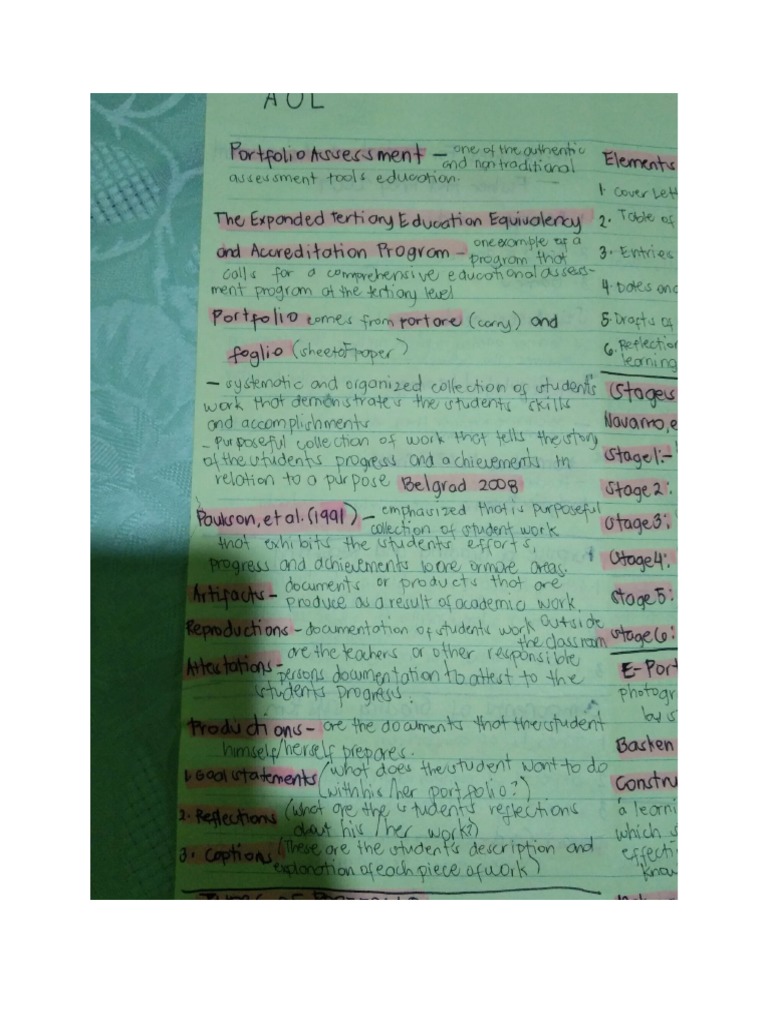 AOL
Portfolio Assessment – one of the authentic
and nontraditional
assessment tools education.
The Expanded Tertiary Education Equivalency
and Accreditation Program – one example of a
program that
calls for a comprehensive educational assess-
ment program at the tertiary level
Portfolio comes from portare (carry) and
foglio (sheet of paper)
– systematic and organized collection of students'
work that demonstrates the students' skills
and accomplishments
– purposeful collection of work that tells the story
of the students progress and achievements in
relation to a purpose Belgrad 2008
Paulson, et al. (1991) – emphasized that is purposeful
collection of student work
that exhibits the students efforts,
progress and achievements in one or more areas.
Artifacts – documents or products that are
produce as a result of academic work.
Reproductions – documentation of students work outside
the classroom
Attestations – are the teachers or other responsible
persons documentation to attest to the
students progress.
Productions – are the documents that the student
himself/herself prepares.
1. Goal statements (what does the student want to do
with his/her portfolio?)
2. Reflections (what are the students reflections
about his/her work?)
3. Captions (These are the student's description and
explanation of each piece of work)
Elements
1. Cover Lett
2. Table of
3. Entries
4. Dates and
5. Drafts of
6. Reflection
learning
Stages
Navarro, e
Stage 1:-
Stage 2:
Stage 3:
Stage 4:
Stage 5:
Stage 6:
E-Port
photogr
by s
Basken
Constru
a learni
which s
effecti
know